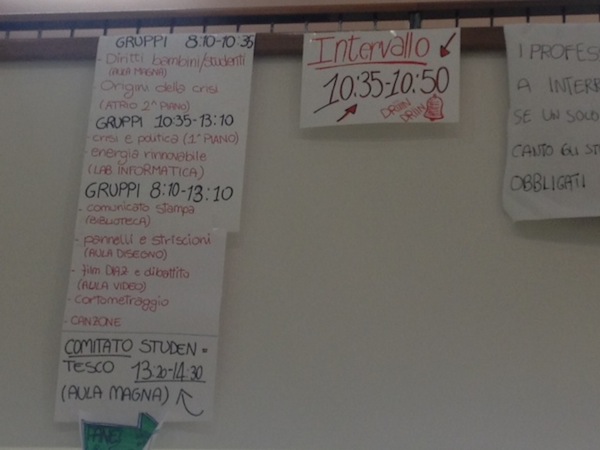 GRUPPI 8:10-10:35
- Diritti bambini/studenti
(AULA MAGNA)
- Origini della crisi
(ATRIO 2° PIANO)
GRUPPI 10:35-13:10
- crisi e politica (1° PIANO)
- energia rinnovabile
(LAB INFORMATICA)
GRUPPI 8:10-13:10
- comunicato stampa
(BIBLIOTECA)
- pannelli e striscioni
(AULA DISEGNO)
- film DIAZ e dibattito
(AULA VIDEO)
- cortometraggio
- CANZONE
COMITATO STUDEN=
TESCO 13:20-14:30
(AULA MAGNA)
Intervallo
10:35-10:50
DRIIN
DRIIN
I PROFES
A INTERR
SE UN SOLO
CANTO GLI ST
OBBLIGATI